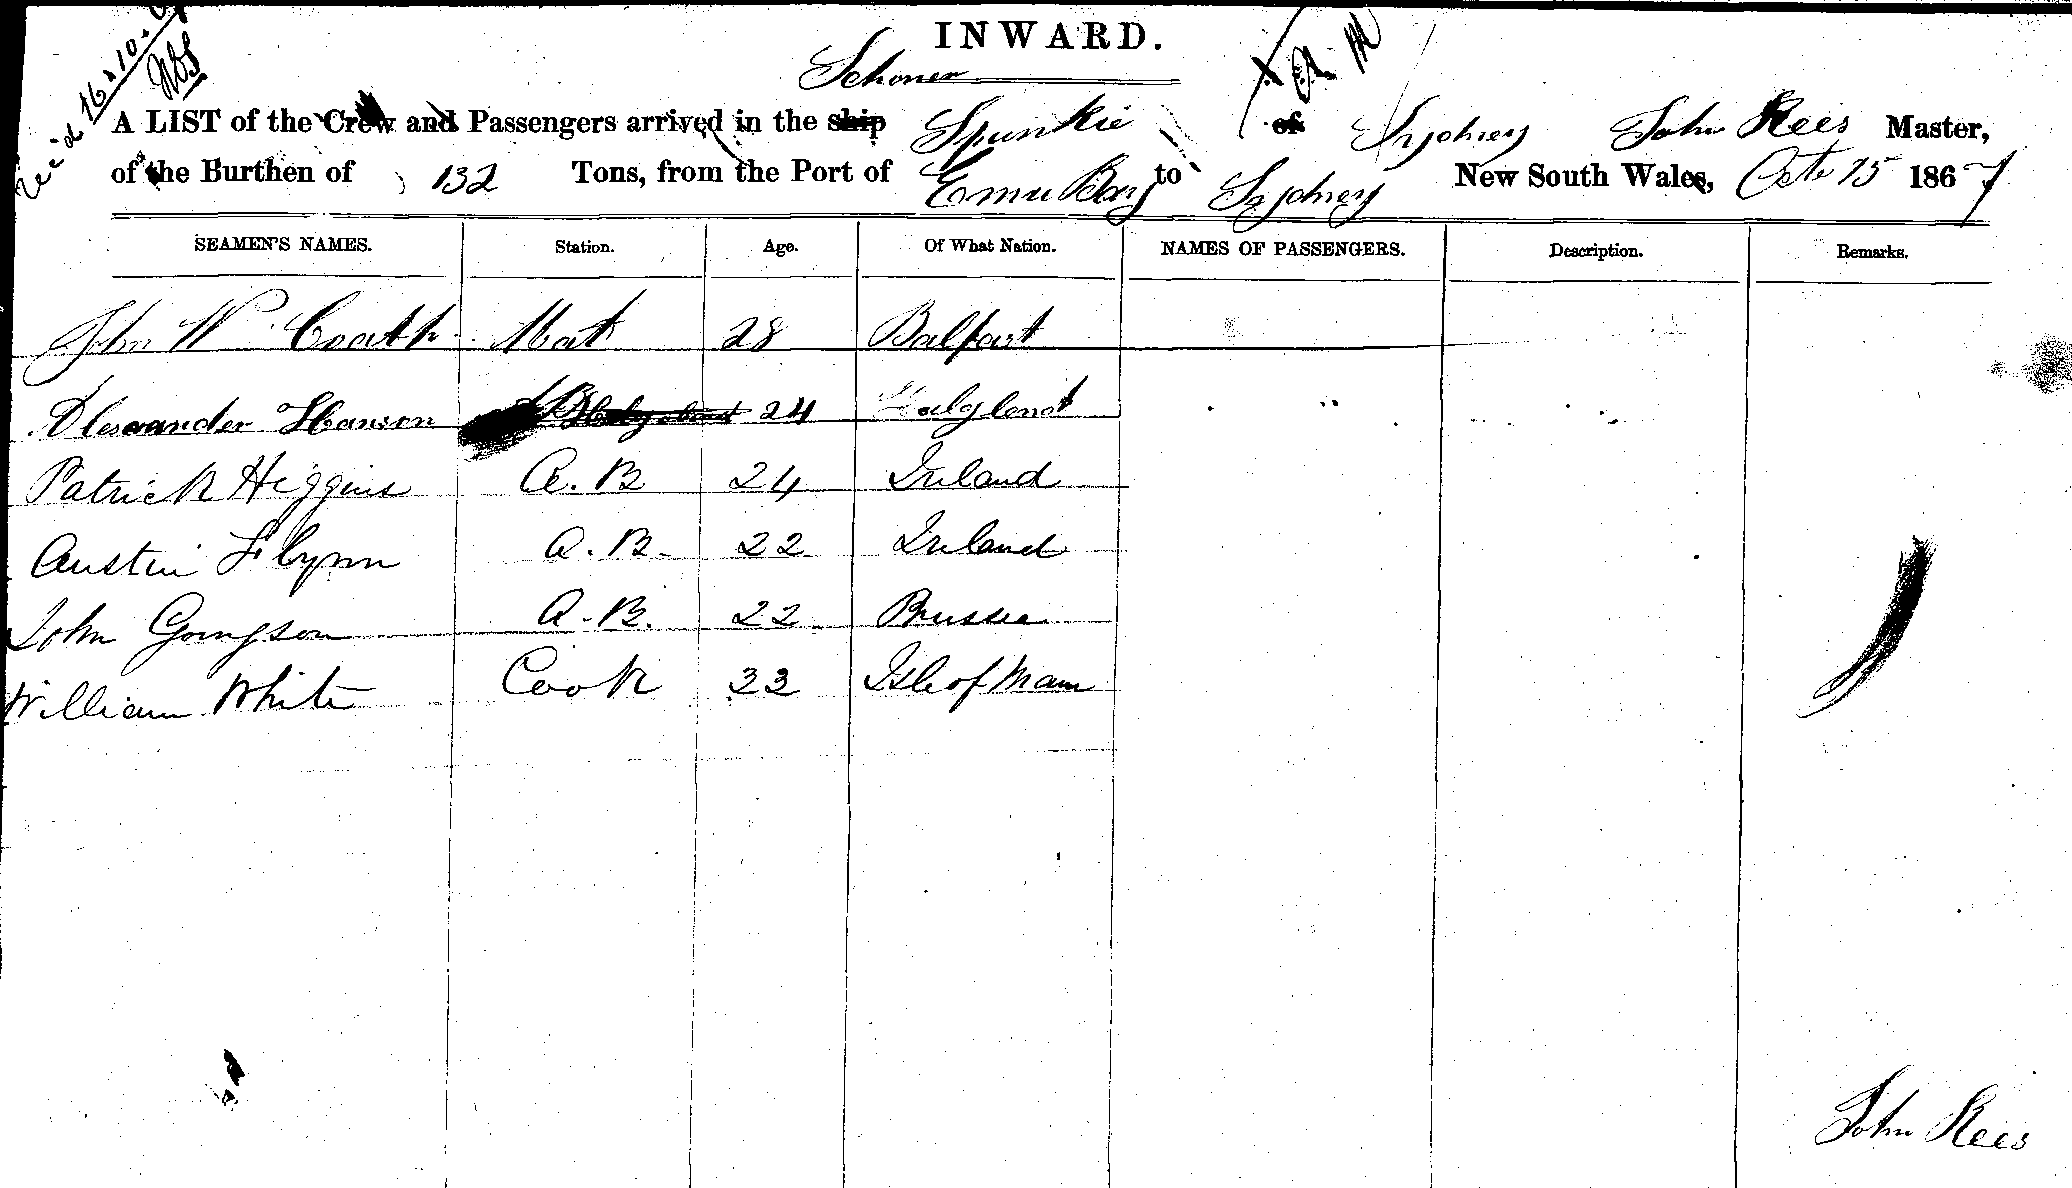 INWARD.
Schoner
A LIST of the Crew and Passengers arrived in the ship Spunkie of Sydney John Rees Master,
of the Burthen of 132 Tons, from the Port of Emu Bay to Sydney New South Wales, Octr 15 1867
SEAMEN'S NAMES. Station. Age. Of What Nation. NAMES OF PASSENGERS. Description. Remarks.
John W Coath Mat 28 Balfast
Alexander Hanson 24 Halgland
Patrick Higgins A. B 24 Ireland
Austin Flynn A. B. 22 Ireland
John Goungson A. B. 22 Prussia
William White Cook 33 Isle of Mann
John Rees